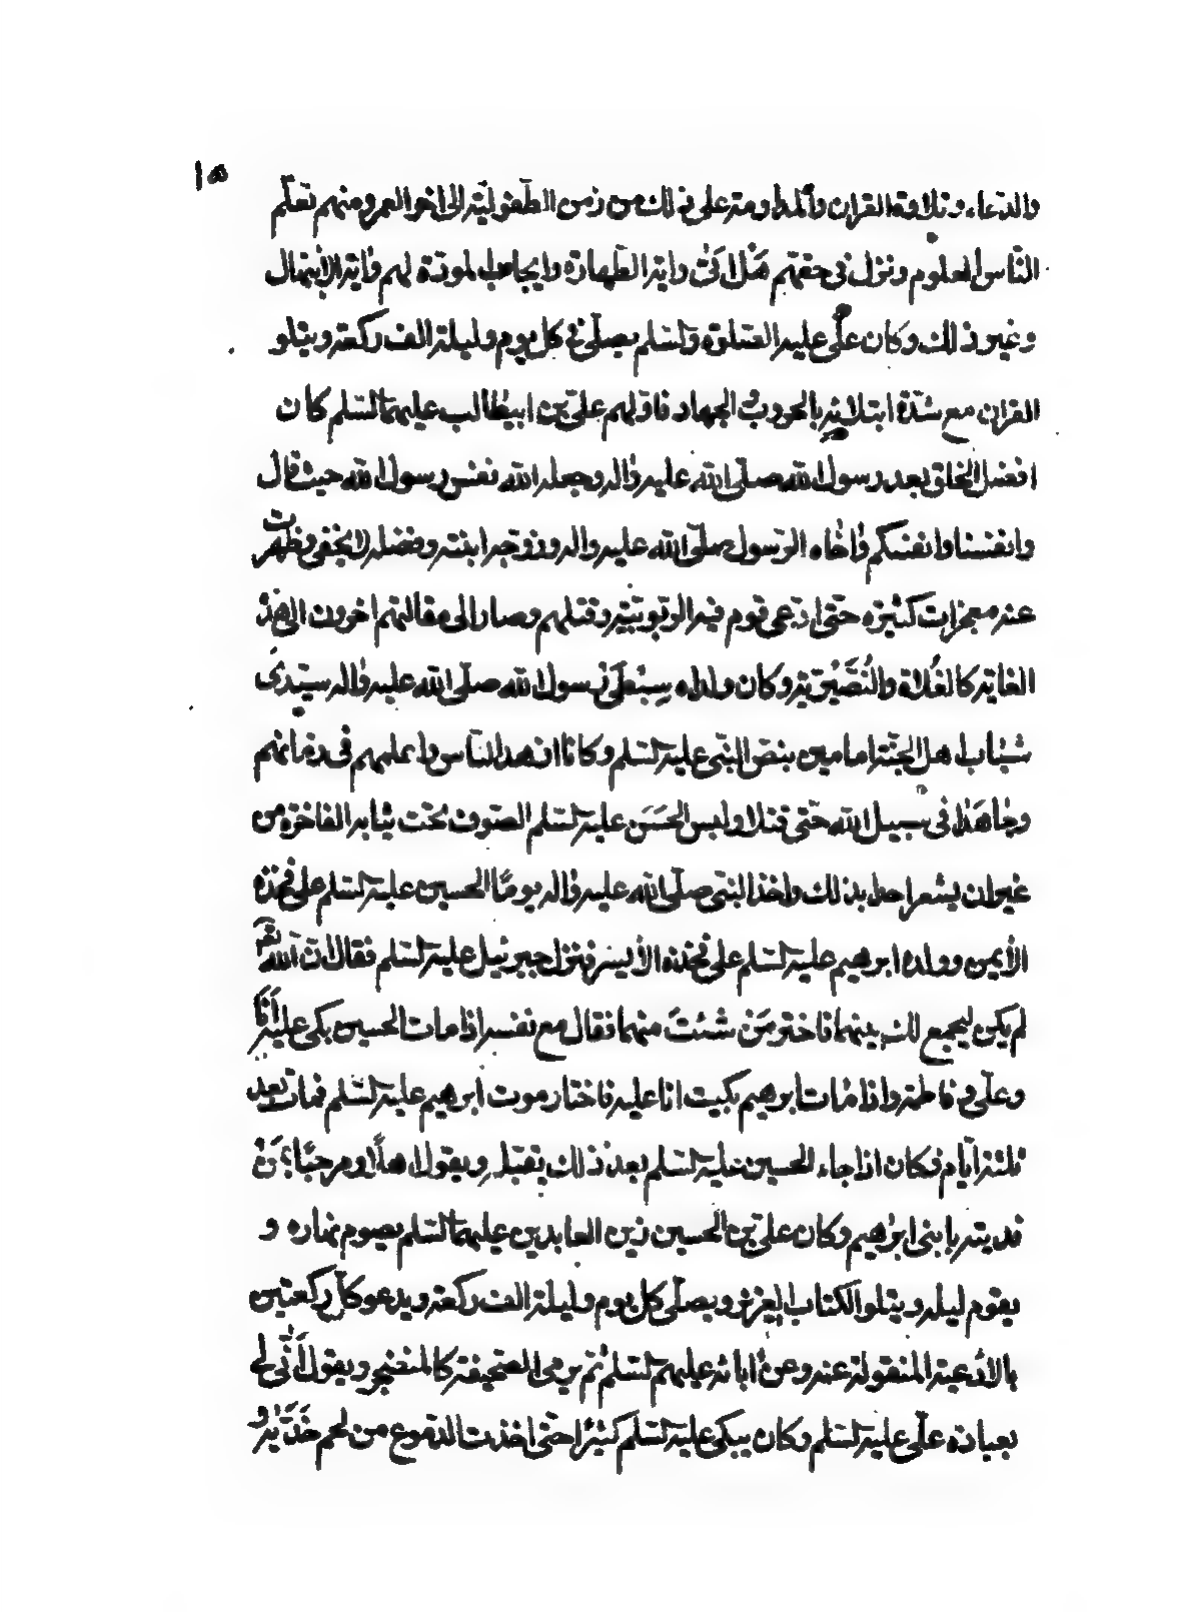 ١٥
والدعاء وتلاوة القران والمداومة على ذلك من زمن الطفوليّة الى اخر العمر ومنهم تعلّم
النّاس العلوم ونزل فى حقهم هَلْ اَتىٰ واية الطّهارة وايجاب المودّة لهم واية الابتهال
وغير ذلك وكان علىّ عليه الصّلوة والسّلم يصلّى فى كل يوم وليلة الف ركعة ويتلو
القران مع شدّة ابتلائه بالحروب والجهاد فاولهم علىّ بن ابيطالب عليهما السّلم كان
افضل الخلق بعد رسول الله صلّى الله عليه واله وجعله الله نفس رسول الله حيث قال
وانفسنا وانفسكم واخاه الرّسول صلّى الله عليه واله وزوّجه ابنته وفضله لا يخفى وظهرت
عنه معجزات كثيرة حتّى ادّعى قوم فيه الرّبوبيّة وقتلهم وصار الى مقالتهم اخرون الى هذه
الغاية كالغُلاة والنُصَيْريّة وكان ولداه سِبْطىْ رسول الله صلّى الله عليه واله سيّدى
شباب اهل الجنّة امامين بنصّ النبّى عليه السّلم وكانا ازهد النّاس واعلمهم فى زمانهم
وجاهَدا فى سبيل الله حتّى قتلا ولبس الحَسَن عليه السّلم الصّوف تحت ثيابه الفاخرة من
غير ان يشعر احد بذلك واخذ النبّى صلّى الله عليه واله يومًا الحسين عليه السّلم على فخذه
الأيمن وولده ابرهيم عليه السّلم على فخذه الأيسر فنزل جبرئيل عليه السّلم فقال انّ الله تعم
لم يكن ليجمع لك بينهما فاختر مَنْ شئتَ منهما فقال مع نفسه اذا مات الحسين بكى عليه اَنَا
وعلى وفاطمة واذا مات ابرهيم بكيت انا عليه فاختار موت ابرهيم عليه السّلم فمات بعد
ثلثة ايّام فكان اذا جاء الحسين عليه السّلم بعد ذلك يقبّله ويقول اهلًا ومرحبًا بمَنْ
فديته بابنى ابرهيم وكان علىّ بن الحسين زين العابدين عليهما السّلم يصوم نهاره و
يقوم ليله ويتلو الكتاب العزيز ويصلّى كل يوم وليلة الف ركعة ويدعو كلّ ركعتين
بالأدعية المنقولة عنه وعن ابائه عليهم السّلم ثم يرمى الصّحيفة كالمتضجر ويقول اَنّى لى
بعبادة علىّ عليه السّلم وكان يبكى عليه السّلم كثيرًا حتّى اخذت الدّموع من لحم خَدَّيْه و